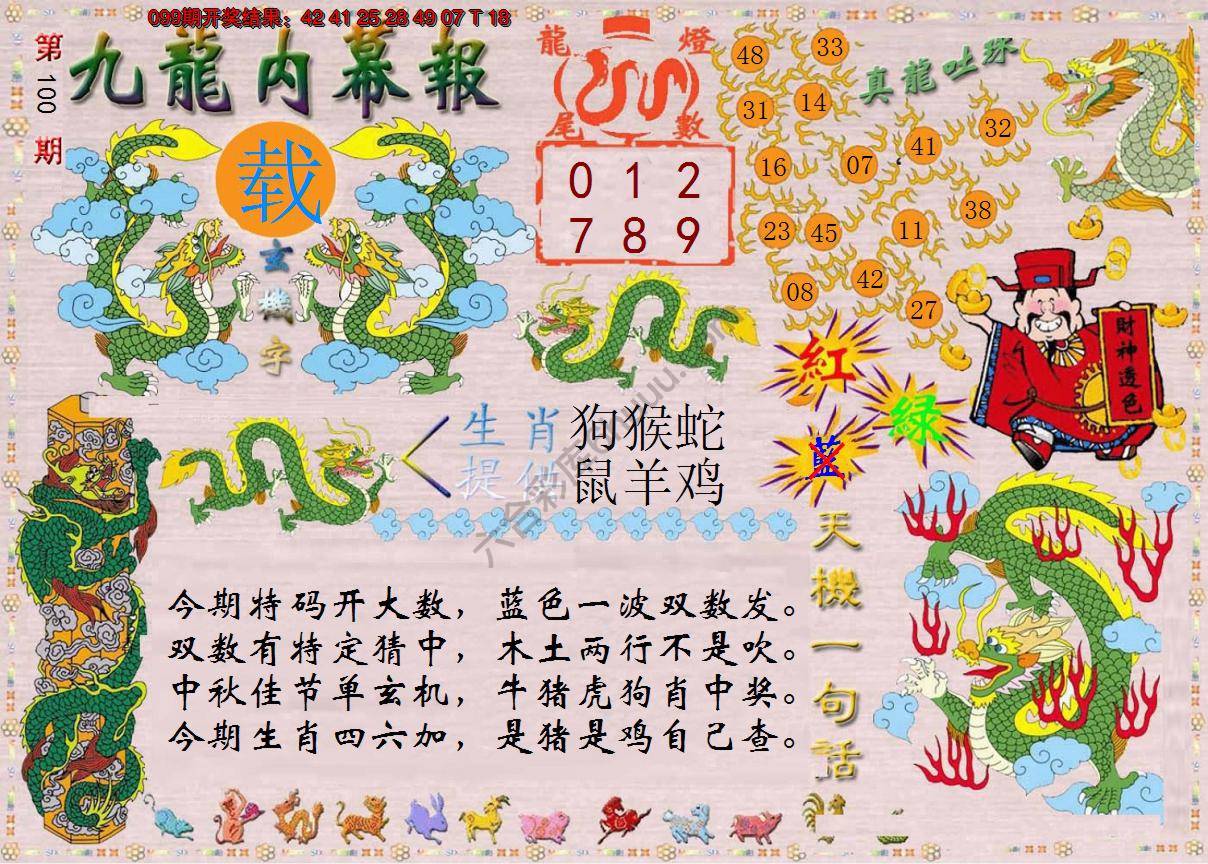 099期开奖结果：42 41 25 28 49 07 T 18
第100期
九龍内幕報
载
玄機字
龍燈
尾數
0 1 2
7 8 9
真龍吐珠
48 33
31 14
41 32
16 07
38
23 45 11
08 42
27
財神透色
紅
綠
藍
生肖 狗猴蛇
提供 鼠羊鸡
天機一句話
今期特码开大数，蓝色一波双数发。
双数有特定猜中，木土两行不是吹。
中秋佳节单玄机，牛猪虎狗肖中奖。
今期生肖四六加，是猪是鸡自己查。